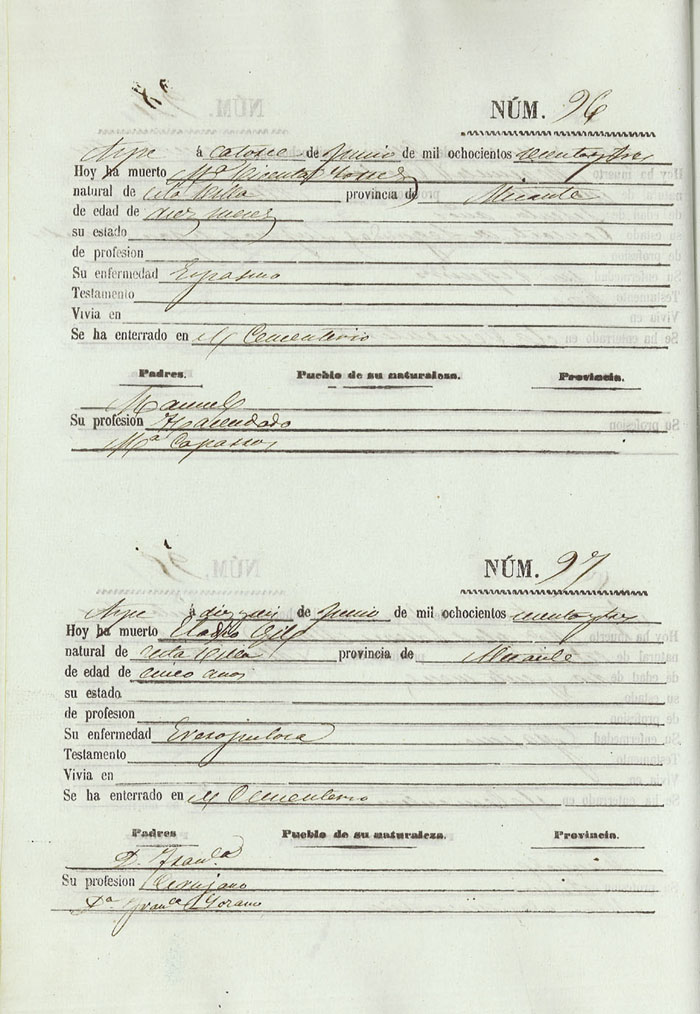 NÚM. 96
Aspe á catorce de Junio de mil ochocientos sesenta y tres
Hoy ha muerto Mª Vicenta
natural de esta Villa provincia de Alicante
de edad de diez meses
su estado
de profesion
Su enfermedad Espasmo
Testamento
Vivia en
Se ha enterrado en el Cementerio
Padres. Pueblo de su naturaleza. Provincia.
Manuel
Su profesion Hacendado
Mª
NÚM. 97
Aspe á diez y seis de Junio de mil ochocientos sesenta y tres
Hoy ha muerto Eladio
natural de esta Villa provincia de Alicante
de edad de cinco años
su estado
de profesion
Su enfermedad
Testamento
Vivia en
Se ha enterrado en el Cementerio
Padres Pueblo de su naturaleza. Provincia.
D. Franco
Su profesion Cirujano
Dª Franca